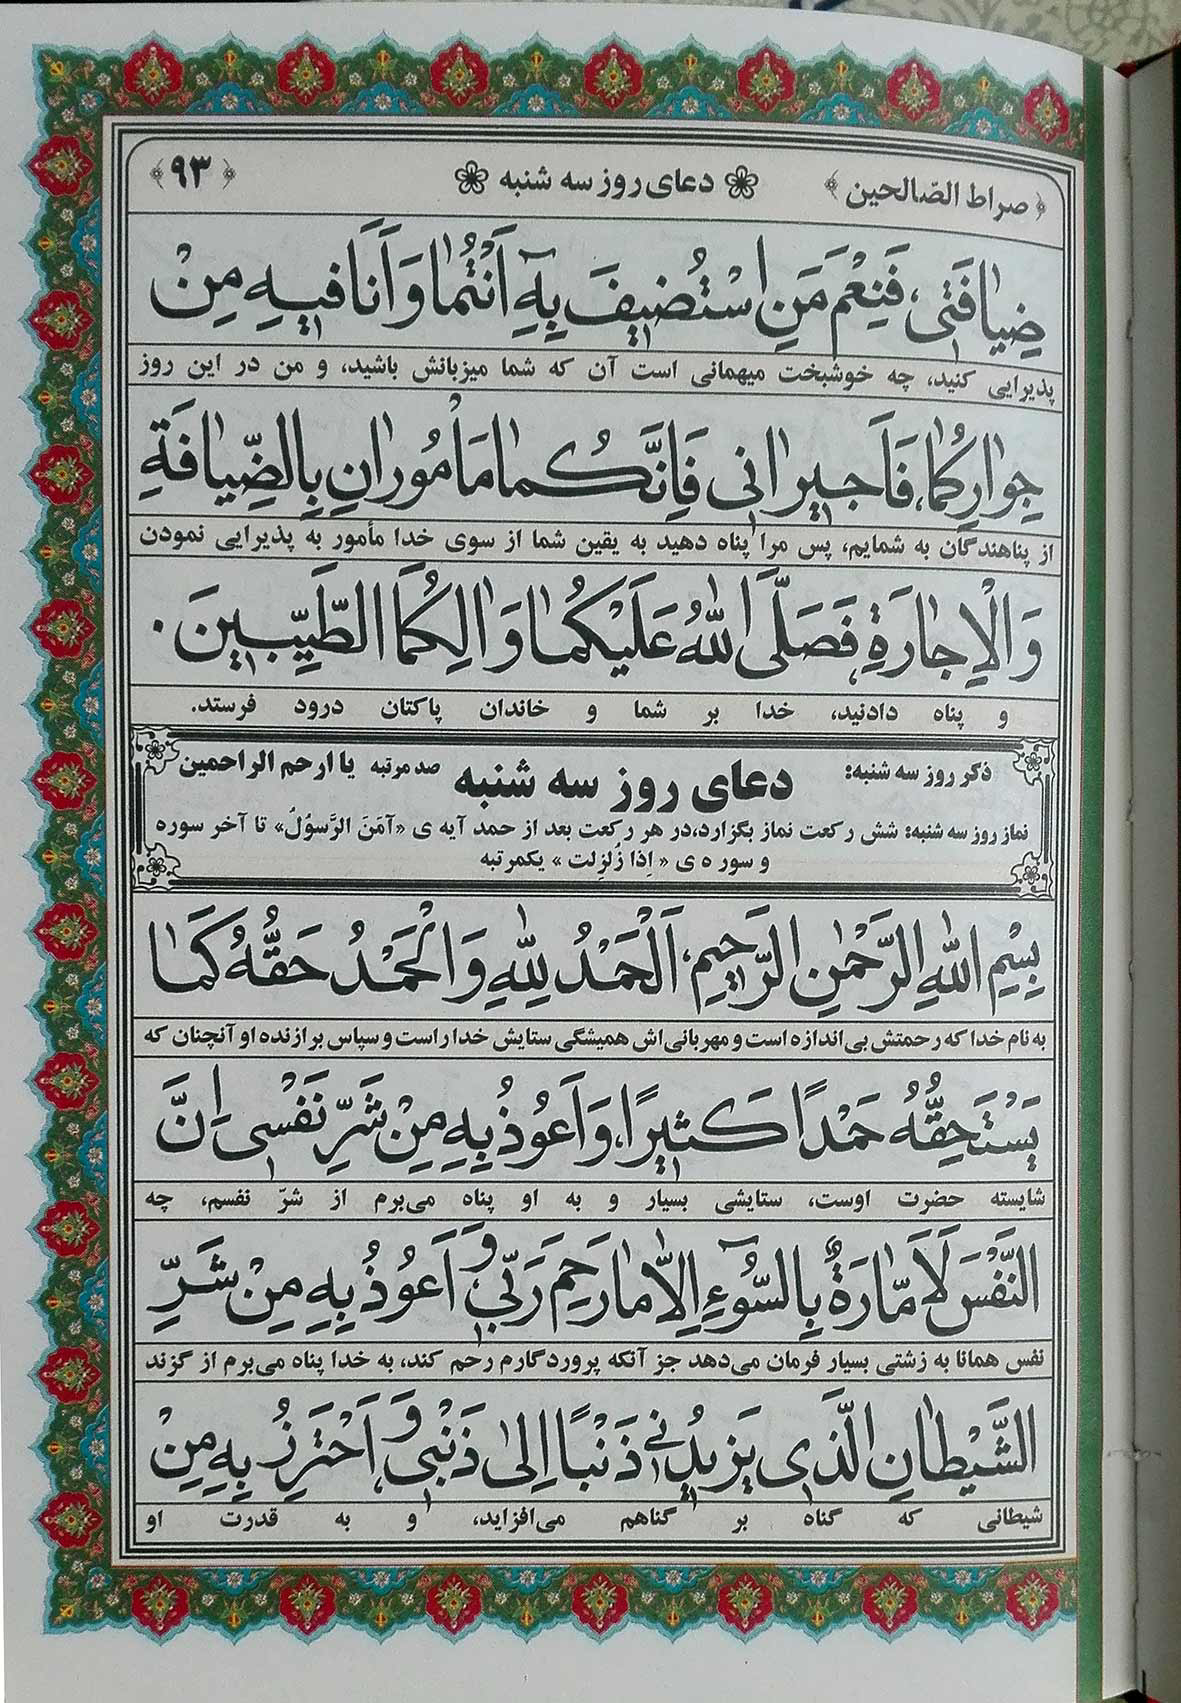 ﴿صراط الصّالحین﴾ دعای روز سه شنبه ﴿۹۳﴾
ضِیافَتی، فَنِعْمَ مَنِ اسْتُضیفَ بِهِ اَنْتُما وَاَنَا فیهِ مِنْ
پذیرایی کنید، چه خوشبخت میهمانی است آن که شما میزبانش باشید، و من در این روز
جِوارِکُما، فَاَجیرانی فَاِنَّکُما مَاْمُورانِ بِالضِّیافَةِ
از پناهندگان به شمایم، پس مرا پناه دهید به یقین شما از سوی خدا مأمور به پذیرایی نمودن
وَالْاِجارَةِ، فَصَلَّی اللهُ عَلَیْکُما وَالِکُمَا الطَّیِّبینَ.
و پناه دادنید، خدا بر شما و خاندان پاکتان درود فرستد.
ذکر روز سه شنبه: دعای روز سه شنبه صد مرتبه یا ارحم الراحمین
نماز روز سه شنبه: شش رکعت نماز بگزارد،در هر رکعت بعد از حمد آیه ی «آمَنَ الرَّسوُلُ» تا آخر سوره
و سوره ی «اِذا زُلزِلت» یکمرتبه
بِسْمِ اللهِ الرَّحْمٰنِ الرَّحیمِ، اَلْحَمْدُ لِلّٰهِ وَالْحَمْدُ حَقُّهُ کَما
به نام خدا که رحمتش بی‌اندازه است و مهربانی‌اش همیشگی ستایش خدا راست و سپاس برازنده او آنچنان که
یَسْتَحِقُّهُ حَمْدًا کَثیرًا، وَاَعُوذُ بِهِ مِنْ شَرِّ نَفْسی اِنَّ
شایسته حضرت اوست، ستایشی بسیار و به او پناه می‌برم از شرّ نفسم، چه
النَّفْسَ لَاَمّارَةٌ بِالسُّوءِ اِلّا ما رَحِمَ رَبّی، وَ اَعُوذُ بِهِ مِنْ شَرِّ
نفس همانا به زشتی بسیار فرمان می‌دهد جز آنکه پروردگارم رحم کند، به خدا پناه می‌برم از گزند
الشَّیْطانِ الَّذی یَزیدُنی ذَنْبًا اِلیٰ ذَنْبی، وَ اَحْتَرِزُ بِهِ مِنْ
شیطانی که گناه بر گناهم می‌افزاید، و به قدرت او